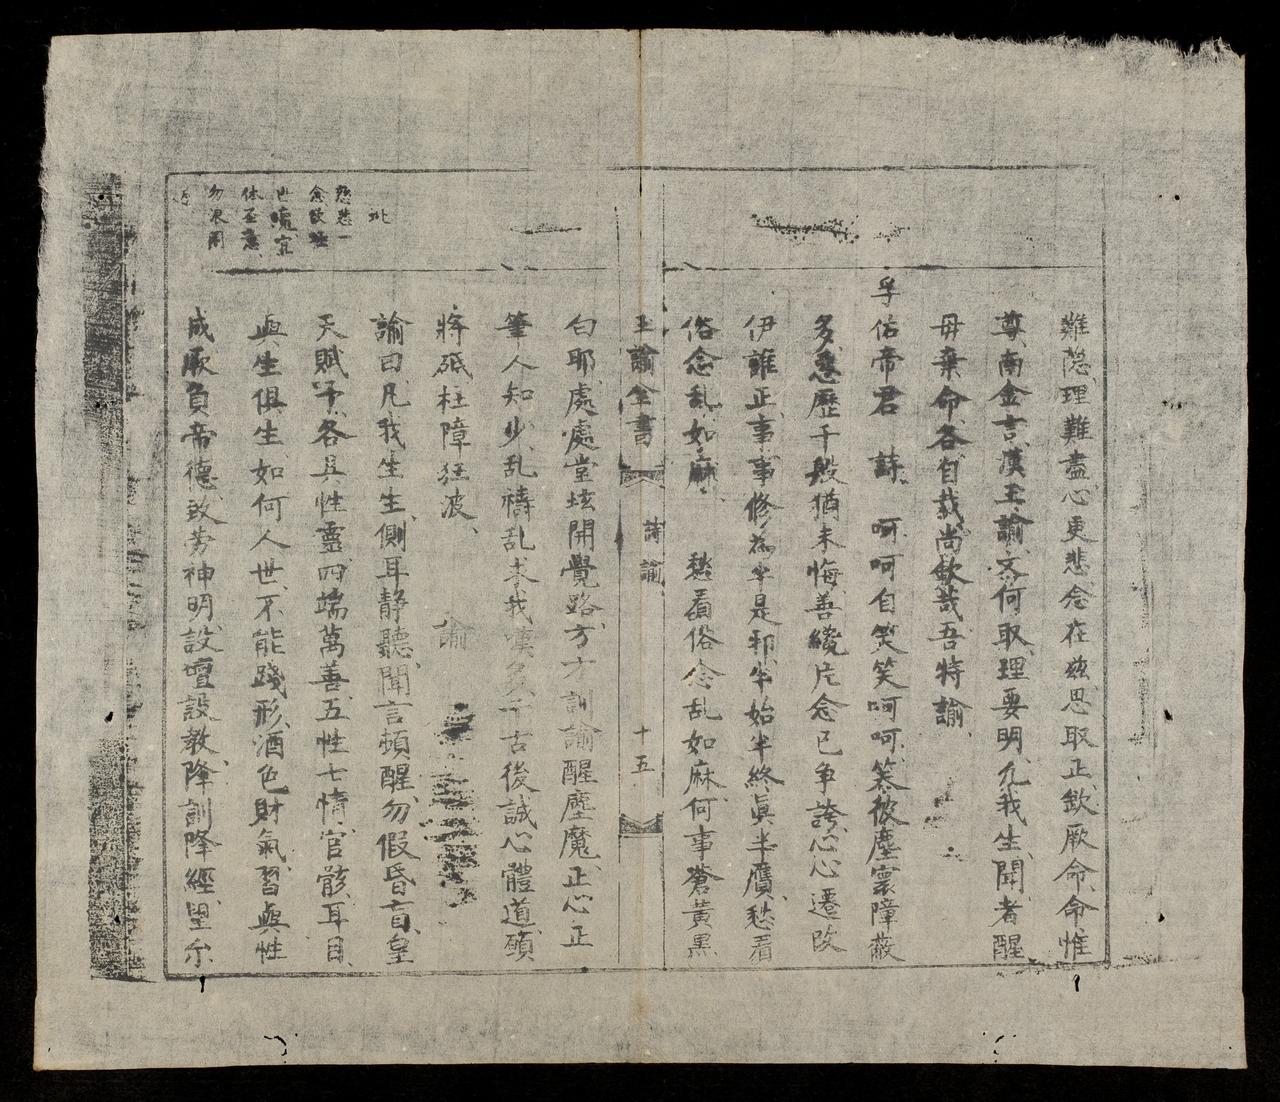 難隐理難盡心更悲念在兹思取正欽厥命命惟
尊南金言漢玉諭文何取理要明凢我生聞者醒
毋棄命各自裁尚欽哉吾特諭
孚佑帝君 詩 呵呵自笑笑呵呵笑彼塵寰障蔽
多悪歴千般猶未悔善纔片念已争誇心心遷改
伊誰正事事修為半是邪半始半終眞半贋愁看
俗念乱如麻 愁看俗念乱如麻何事蒼黄黒
玉諭全書 詩諭 十五
白耶處處堂垓開覺路方方訓諭醒塵魔正心正
筆人知少乱禱乱求我嘆多千古後誠心體道願
將砥柱障狂波 諭
諭曰凢我生生側耳静聽聞言頓醒勿假昏盲皇
天賦予各具性靈四端萬善五性七情官骸耳目
與生俱生如何人世不能踐形酒色財氣習與性
成厥負帝德致劳神明設壇設教降訓降經望尔
此
慈悲一
念欲挽
世處宜
体至意
勿泯罔